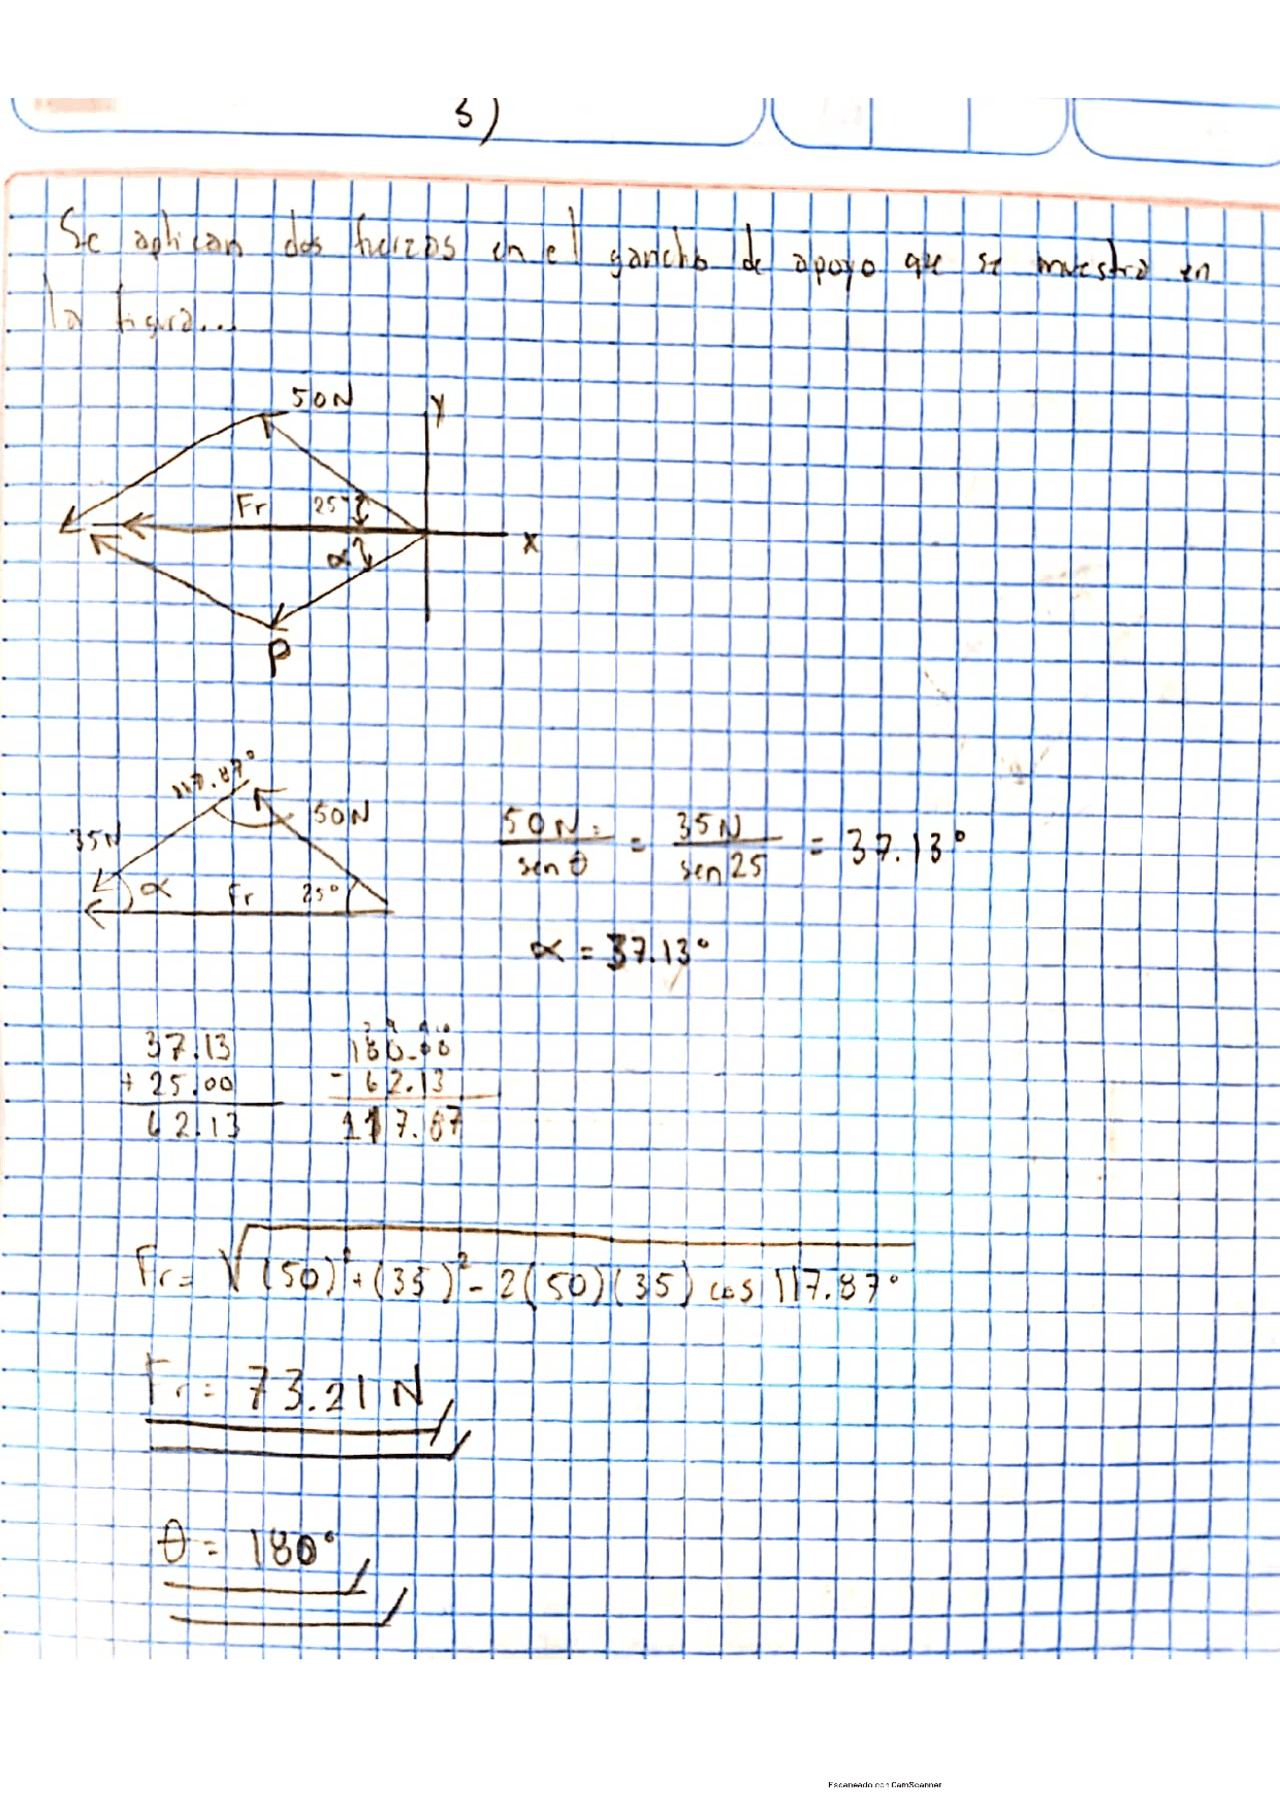 3)
Se aplican dos fuerzas en el gancho de apoyo que se muestra en
la figura...
50N
y
Fr
25°
x
α
P
117.87°
50N
35N
α
Fr
25°
50N / sen θ = 35N / sen 25 = 37.13°
α = 37.13°
37.13
+ 25.00
62.13
180.00
- 62.13
117.87
Fr = √(50)² + (35)² - 2(50)(35) cos 117.87°
Fr = 73.21 N
θ = 180°
Escaneado con CamScanner